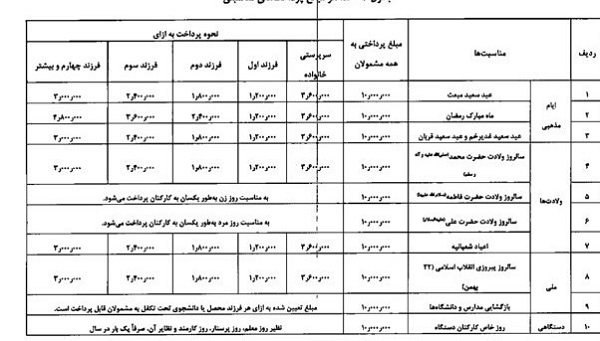 ردیف
مناسبت‌ها
مبلغ پرداختی به همه مشمولان
نحوه پرداخت به ازای
سرپرستی خانواده
فرزند اول
فرزند دوم
فرزند سوم
فرزند چهارم و بیشتر
ایام مذهبی
۱ عید سعید مبعث ۱۰٫۰۰۰٫۰۰۰ ۳٫۶۰۰٫۰۰۰ ۱٫۲۰۰٫۰۰۰ ۱٫۸۰۰٫۰۰۰ ۲٫۴۰۰٫۰۰۰ ۳٫۰۰۰٫۰۰۰
۲ ماه مبارک رمضان ۱۰٫۰۰۰٫۰۰۰ ۳٫۶۰۰٫۰۰۰ ۱٫۲۰۰٫۰۰۰ ۲٫۴۰۰٫۰۰۰ ۳٫۶۰۰٫۰۰۰ ۴٫۸۰۰٫۰۰۰
۳ عید سعید غدیرخم و عید سعید قربان ۱۰٫۰۰۰٫۰۰۰ ۳٫۶۰۰٫۰۰۰ ۱٫۲۰۰٫۰۰۰ ۱٫۸۰۰٫۰۰۰ ۲٫۴۰۰٫۰۰۰ ۳٫۰۰۰٫۰۰۰
ولادت‌ها
۴ سالروز ولادت حضرت محمد (صلی‌الله علیه و آله و سلم) ۱۰٫۰۰۰٫۰۰۰ ۳٫۶۰۰٫۰۰۰ ۱٫۲۰۰٫۰۰۰ ۱٫۸۰۰٫۰۰۰ ۲٫۴۰۰٫۰۰۰ ۳٫۰۰۰٫۰۰۰
۵ سالروز ولادت حضرت فاطمه ۱۰٫۰۰۰٫۰۰۰ به مناسبت روز زن به‌طور یکسان به کارکنان پرداخت می‌شود.
۶ سالروز ولادت حضرت علی ۱۰٫۰۰۰٫۰۰۰ به مناسبت روز مرد به‌طور یکسان به کارکنان پرداخت می‌شود.
۷ اعیاد شعبانیه ۱۰٫۰۰۰٫۰۰۰ ۳٫۶۰۰٫۰۰۰ ۱٫۲۰۰٫۰۰۰ ۱٫۸۰۰٫۰۰۰ ۲٫۴۰۰٫۰۰۰ ۳٫۰۰۰٫۰۰۰
ملی
۸ سالروز پیروزی انقلاب اسلامی (۲۲ بهمن) ۱۰٫۰۰۰٫۰۰۰ ۳٫۶۰۰٫۰۰۰ ۱٫۲۰۰٫۰۰۰ ۱٫۸۰۰٫۰۰۰ ۲٫۴۰۰٫۰۰۰ ۳٫۰۰۰٫۰۰۰
۹ بازگشایی مدارس و دانشگاه‌ها ۱۰٫۰۰۰٫۰۰۰ مبلغ تعیین شده به ازای هر فرزند محصل یا دانشجوی تحت تکفل به مشمولان قابل پرداخت است.
دستگاهی
۱۰ روز خاص کارکنان دستگاه ۱۰٫۰۰۰٫۰۰۰ نظیر روز معلم، روز پرستار، روز کارمند و نظایر آن، صرفاً یک بار در سال